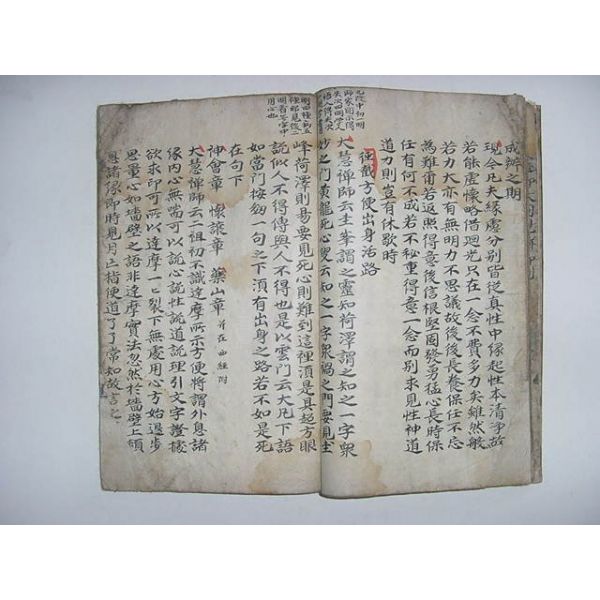 成辦之期
現今凡夫緣慮分別皆從眞性中緣起性本清淨故
若能虛懷略借廻光只在一念不費多力矣雖然般
若力大亦有無明力不思議故後後長養保任不忘
爲難爾若返照得意後信根堅固發勇猛心長時保
任有何不成若不秘重得意一念而別求見性神道
道力則豈有休歇時
徑截方便出身活路
大慧禪師云圭峯謂之靈知荷澤謂之知之一字衆
妙之門黃龍死心叟云知之一字衆禍之門要見圭
峰荷澤則易要見死心則難到這裡須是具超方眼
說似人不得傳與人不得也是以雲門云大凡下語
如當門按劒一句之下須有出身之路若不如是死
在句下
神會章 懷讓章 藥山章
大慧禪師云二祖初不識達摩所示方便將謂外息諸
緣內心無喘可以說心說性說道說理引文字證據
欲求印可所以達摩一一裂下無處用心方始退步
思量心如墻壁之語非達摩實法忽然於墻壁上頓
息諸緣即時見月亡指便道了了常知故言之